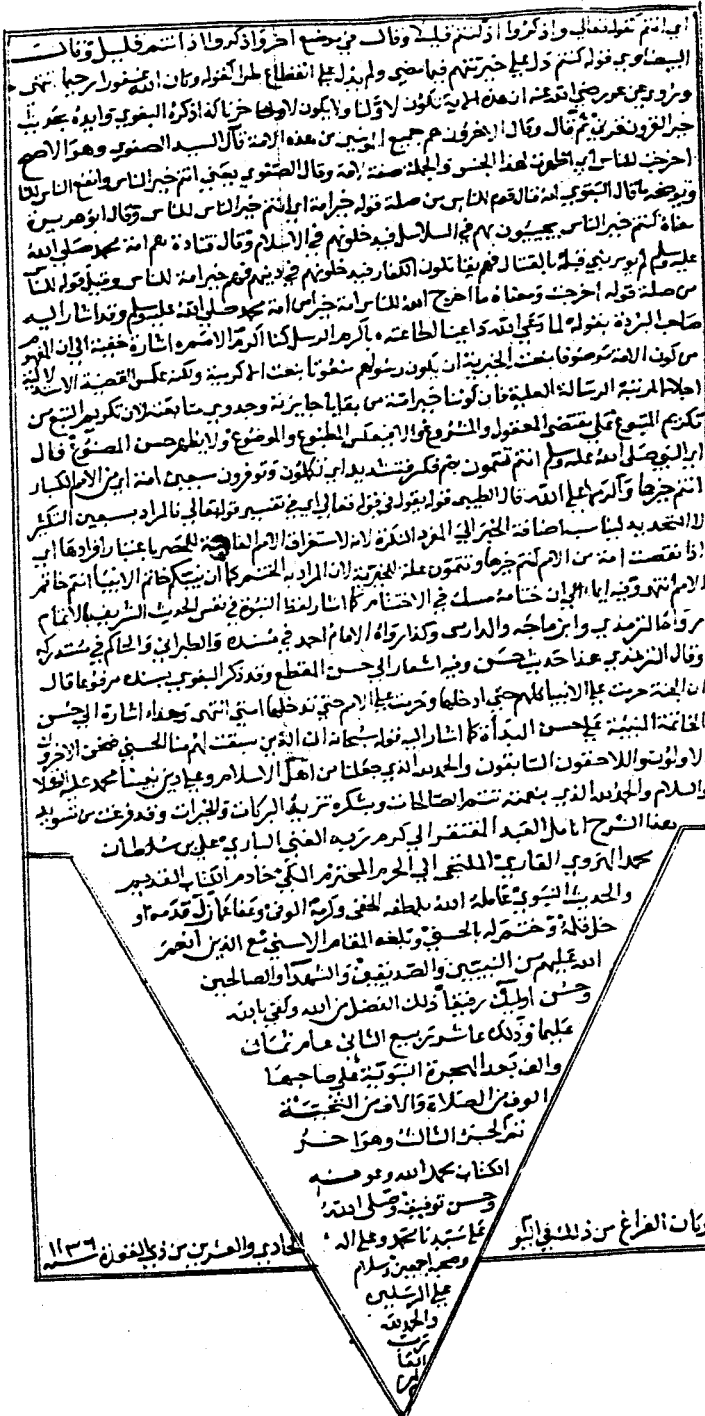 أي أنتم كقوله تعالى واذكروا إذ كنتم قليلا وقال في موضع آخر واذكروا إذ أنتم قليل وقال
البيضاوي قوله كنتم دل على خيرتهم فيما مضى ولم يدل على انقطاع طرأ كقوله وكان الله غفورا رحيما انتهى
ويروى عن عمر رضي الله عنه ان هذه الآية تكون لأولنا ولا يكون لآخرنا كذا ذكره البغوي وأيده بحديث
خير القرون قرني ثم قال وقال الآخرون هم جميع المؤمنين من هذه الامة قال السيد الصفوي وهو الاصح
اخرجت للناس أي اظهرت لهذا الجنس والجملة صفة لامة وقال الصفوي يعني انتم خير الناس وانفع الناس للناس
وتوضيحه ما قال البغوي انه قال قوم للناس من صلة قوله خير امة اي انتم خير الناس للناس وقال ابو هريرة
معناه كنتم خير الناس يجيئون بهم في السلاسل فيدخلونهم في الاسلام وقال قتادة هم امة محمد صلى الله
عليه وسلم لم يؤمر نبي قبله بالقتال فهم يقاتلون الكفار فيدخلونهم في دينهم فهم خير امة للناس وقيل قوله للناس
من صلة قوله اخرجت ومعناه ما اخرج الله للناس امة خير من امة محمد صلى الله عليه وسلم وقد اشار اليه
صاحب البردة بقوله لما دعى الله داعينا لطاعته باكرم الرسل كنا اكرم الامم وه اشارة خفية الى ان المفهوم
من كون الامة موصوفا بنعت الخيرية ان يكون رسولهم منعوتا بنعت الاكرمية ولكنه عكس القضية الاستدلالية
اجلالا لمرتبة الرسالة العلية فان كوننا خير امة من بقايا جايزته وجدوى متابعته لان تكريم التبع من
تكريم المتبوع على مقتضى المعقول والمشروع والا فيعكس المطبوع والموضوع ولا يظهر حسن المصنوع قال
اي النبي صلى الله عليه وسلم انتم تتمون بضم فكسر فتشديد اي تكملون وتوفرون سبعين امة اي من الامم الكبار
انتم خيرها واكرمها على الله قال الطيبي قوله يقول في قوله تعالى اي في تفسير قوله تعالى فالمراد بسبعين التكثير
لا التحديد ليناسب اضافة الخير الى المفرد النكرة لانه لاستغراق الامم الفايتة للحصر باعتبار افرادها اي
اذا نقصت امة من الامم كنتم خيرها وتتمون علة للخيرية لان المراد به الختم كما ان نبيكم خاتم الانبياء انتم خاتم
الامم انتهى وفيه ايماء الى ان ختامه مسك في الاختتام كما اشار لفظ النبوة في نفس الحديث الشريف بالاتمام
رواه الترمذي وابن ماجه والدارمي وكذا رواه الامام احمد في مسنده والطبراني والحاكم في مستدركه
وقال الترمذي هذا حديث حسن وفيه اشعار الى حسن المقطع وقد ذكر البغوي بسنده مرفوعا قال
ان الجنة حرمت على الانبياء كلهم حتى ادخلها وحرمت على الامم حتى تدخلها امتي انتهى وهذا اشارة الى حسن
الخاتمة المبنية على حسن البدأة كما اشار اليه قوله سبحانه ان الذين سبقت لهم منا الحسنى فنحن الاخرون
الاولون واللاحقون السابقون والحمد لله الذي جعلنا من اهل الاسلام وعلى دين نبينا محمد عليه الصلاة
والسلام والحمد لله الذي بنعمته تتم الصالحات وبشكره تزيد البركات والخيرات وقد فرغت من تسويد
هذا الشرح انامل العبد المفتقر الى كرم ربه الغني الباري علي بن سلطان
محمد الهروي القاري الملتجي الى الحرم المحترم المكي خادم الكتاب القديم
والحديث النبوي عامله الله بلطفه الخفي وكرمه الوفي وعفا عما زل قدمه او
خل قلمه وختم له بالحسنى وبلغه المقام الاسنى مع الذين انعم
الله عليهم من النبيين والصديقين والشهداء والصالحين
وحسن اولئك رفيقا ذلك الفضل من الله وكفى بالله
عليما وذلك عاشر ربيع الثاني عام ثمان
والف بعد الهجرة النبوية على صاحبها
الوف من الصلاة والاف من التحية
تم الجزء الثالث وهو اخر
الكتاب بحمد الله وعونه
وحسن توفيقه وصلى الله
على سيدنا محمد وعلى اله
وصحبه اجمعين وسلام
على المرسلين
والحمد لله
رب
العا
لمين
وكان الفراغ من ذلك في اليوم
الحادي والعشرين من ذي القعدة سنة ١١٣٦